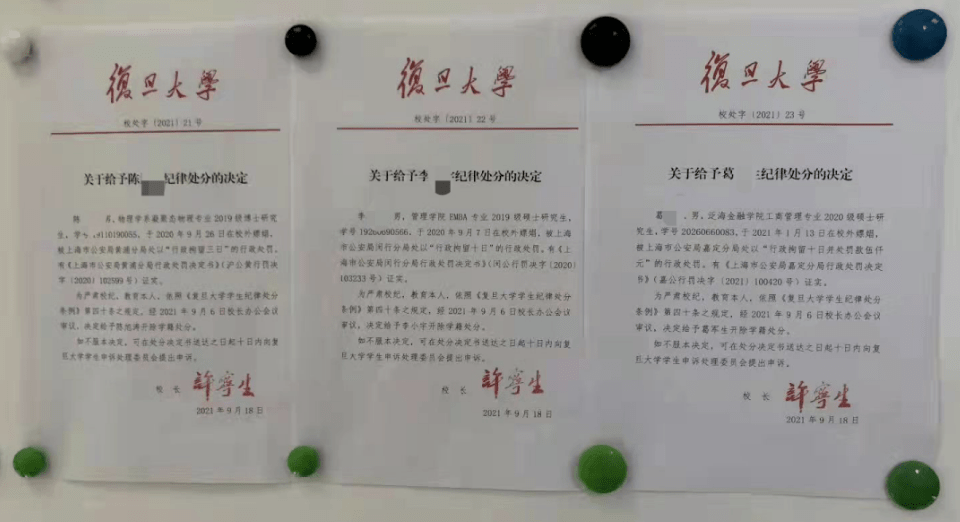 復旦大學
校处字〔2021〕21 号
关于给予陈 纪律处分的决定
男，物理学系凝聚态物理专业 2019 级博士研究
生，学号 110190055，于 2020 年 9 月 26 日在校外嫖娼，
被上海市公安局黄浦分局处以“行政拘留三日”的行政处罚。
有《上海市公安局黄浦分局行政处罚决定书》（沪公黄行罚决
字〔2020〕102599 号）证实。
为严肃校纪、教育本人，依照《复旦大学学生纪律处分
条例》第四十条之规定，经 2021 年 9 月 6 日校长办公会议
审议，决定给予陈 开除学籍处分。
如不服本决定，可在处分决定书送达之日起十日内向复
旦大学学生申诉处理委员会提出申诉。
校 长 許寧生
2021 年 9 月 18 日
復旦大學
校处字〔2021〕22 号
关于给予李 纪律处分的决定
李 男，管理学院 EMBA 专业 2019 级硕士研究生，
学号 192 90566，于 2020 年 9 月 7 日在校外嫖娼，被上
海市公安局闵行分局处以“行政拘留十日”的行政处罚，有《上
海市公安局闵行分局行政处罚决定书》（闵公行罚决字〔2020〕
102233 号）证实。
为严肃校纪、教育本人，依照《复旦大学学生纪律处分
条例》第四十条之规定，经 2021 年 9 月 6 日校长办公会议
审议，决定给予李小宇开除学籍处分。
如不服本决定，可在处分决定书送达之日起十日内向复
旦大学学生申诉处理委员会提出申诉。
校 长 許寧生
2021 年 9 月 18 日
復旦大學
校处字〔2021〕23 号
关于给予葛 纪律处分的决定
葛 ，男，泛海金融学院工商管理专业 2020 级硕士研
究生，学号 20260660083，于 2021 年 1 月 13 日在校外嫖娼，
被上海市公安局嘉定分局处以“行政拘留十日并处罚款伍仟
元”的行政处罚。有《上海市公安局嘉定分局行政处罚决定
书》（嘉公行罚决字〔2021〕100420 号）证实。
为严肃校纪、教育本人，依照《复旦大学学生纪律处分
条例》第四十条之规定，经 2021 年 9 月 6 日校长办公会议
审议，决定给予葛军生开除学籍处分。
如不服本决定，可在处分决定书送达之日起十日内向复
旦大学学生申诉处理委员会提出申诉。
校 长 許寧生
2021 年 9 月 18 日